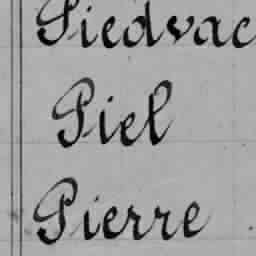 Piedvac
Piel
Pierre